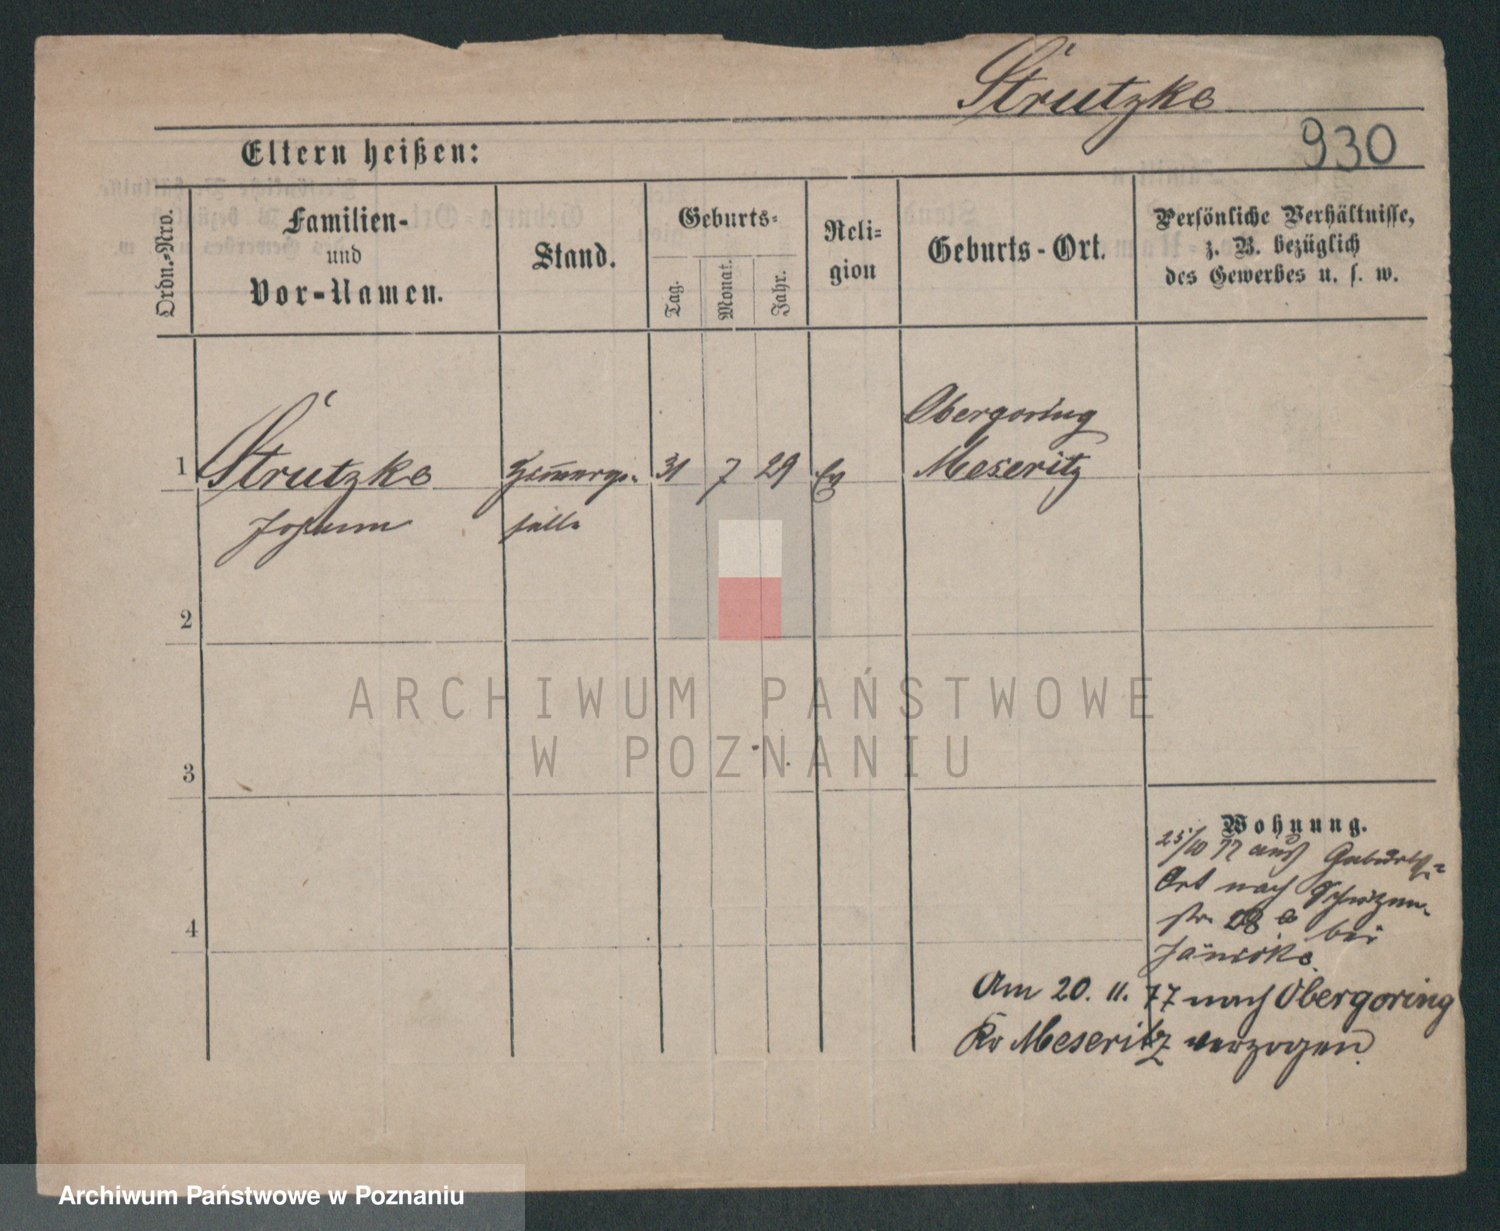 Strutzke
930
Eltern heißen:
Ordn.-Nro.
Familien-
und
Vor-Namen.
Stand.
Geburts-
Tag.
Monat.
Jahr.
Reli-
gion
Geburts-Ort.
Persönliche Verhältnisse,
z. B. bezüglich
des Gewerbes u. s. w.
Obergoring
1 Strutzke 31 7 29 Ev Meseritz
Johann
2
3
4
Wohnung.
25/10 77 aus Geburts-
Ort nach Schützen-
str. 28 bei
Jänicke.
Am 20. 11. 77 nach Obergoring
Kr Meseritz verzogen.
ARCHIWUM PAŃSTWOWE
W POZNANIU
Archiwum Państwowe w Poznaniu